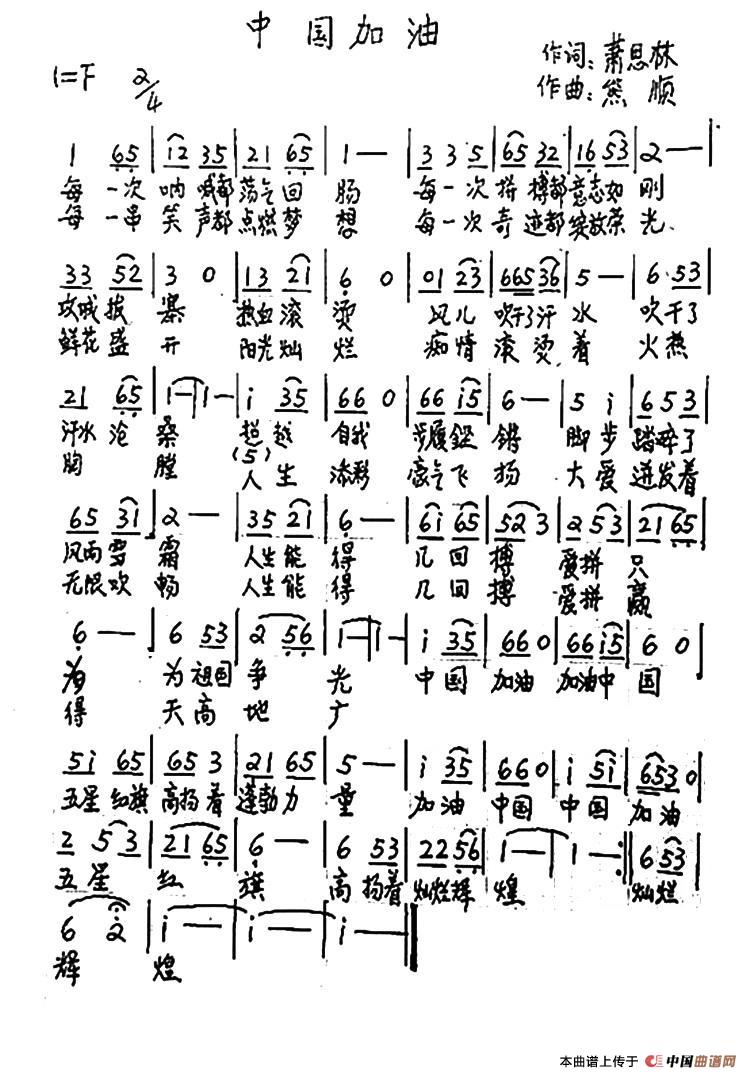 中国加油
作词:萧思林
1=F 2/4
作曲:熊顺
1 65 | 12 35 | 21 65 | 1 — | 3 3 5 | 65 32 | 16 53 | 2 — |
每一次呐喊都荡气回肠 每一次拼搏都意志如刚
每一串笑声都点燃梦想 每一次奇迹都绽放荣光
33 52 | 3 0 | 13 21 | 6 0 | 01 23 | 665 36 | 5 — | 6 53 |
攻城拔寨 热血滚烫 风儿吹干了汗水 吹干了
鲜花盛开 阳光灿烂 痴情滚烫着 火热
21 65 | 1 — | 1 — | i 35 | 66 0 | 66 i5 | 6 — | 5 i | 6 5 3 |
汗水沧桑 超越自我 步履铿锵 脚步踏碎了
胸膛 (5) 人生添彩 豪气飞扬 大爱迸发着
65 31 | 2 — | 35 21 | 6 — | 6i 65 | 52 3 | 2 5 3 | 21 65 |
风雨雪霜 人生能得几回搏 爱拼只
无限欢畅 人生能得几回搏 爱拼赢
6 — | 6 53 | 2 56 | 1 — | 1 — | i 35 | 66 0 | 66 i5 | 6 0 |
为 为祖国争光 中国加油 加油中国
得 天高地广
5i 65 | 65 3 | 21 65 | 5 — | i 35 | 66 0 | i 5i | 653 0 |
五星红旗高扬着蓬勃力量 加油中国 中国加油
2 5 3 | 21 65 | 6 — | 6 53 | 22 56 | 1 — | 1 — :| 6 53 |
五星红旗 高扬着灿烂辉煌 灿烂
6 2 | i — | i — | i — ||
辉煌
本曲谱上传于 中国曲谱网